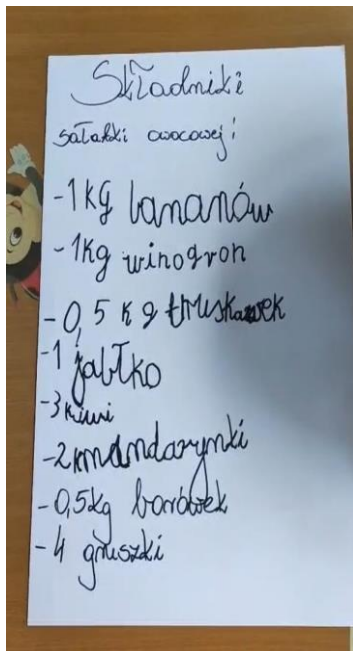 Składniki
sałatki owocowej:
-1 kg bananów
-1kg winogron
-0,5 kg truskawek
-1 jabłko
-3 kiwi
-2 mandarynki
-0,5kg borówek
-4 gruszki